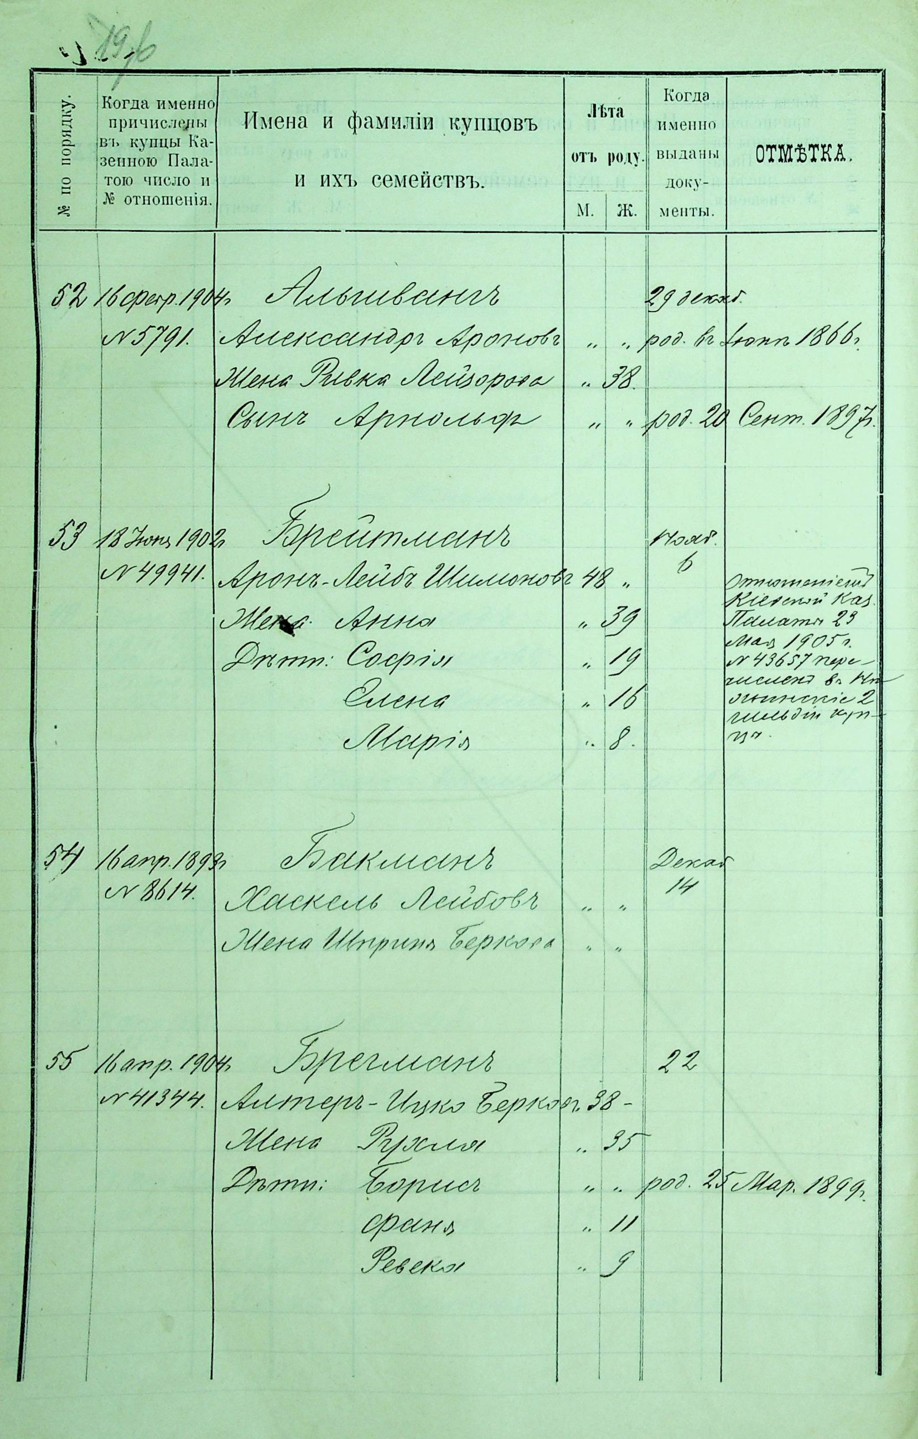 196
№ по порядку.
Когда именно
причислены
въ купцы Ка-
зенною Пала-
тою число и
№ отношенія.
Имена и фамиліи купцовъ
и ихъ семействъ.
Лѣта
отъ роду.
М. Ж.
Когда
именно
выданы
доку-
менты.
ОТМѢТКА.
52 16 февр. 1904г Альшвангъ 29 декаб.
№ 5791. Александръ Ароновъ „ „ род. въ Іюнѣ 1866г.
Жена Ривка Лейзорова „ 38.
Сынъ Арнольф „ „ род. 20 Сент. 1897г.
53 18 Іюня 1902г Брейтманъ Нояб.
№ 49941. Аронъ-Лейбъ Шимоновъ 48 „ 6
Жена Анна „ 39
Дѣти: Софія „ 19
Елена „ 16
Марія „ 8.
Отношеніем
Кіевской Каз.
Палаты 23
Мая 1905г.
№ 43657 пере-
численъ въ
2
гильдіи куп-
цы.
54 16 апр. 1893г Бакманъ Декаб
№ 8614. Хаскель Лейбовъ „ „ 14
Жена Шприня Беркова „ „
55 16 апр. 1904г. Брегманъ 22
№ 41344. Алтеръ-Ицко Берковъ 38 -
Жена Рухля „ 35
Дѣти: Борисъ „ „ род. 25 Мар. 1899г.
Фаня „ 11
Ревека „ 9